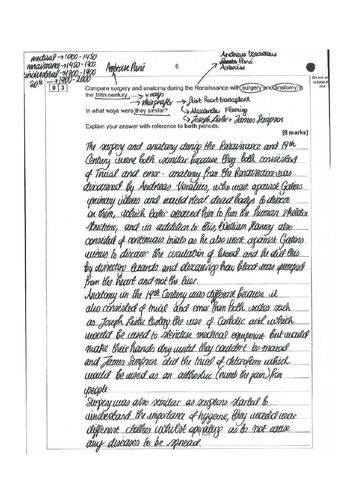 medieval → 1000 - 1450
renaissance → 1450 - 1700
industrial → 1700 - 1900
20th → 1900 - 2000
Ambroise Paré
6
Andreas Vesalius
Paré
0 3
Compare surgery and anatomy during the Renaissance with surgery and anatomy in
the 19th century.
x-rays
first heart transplant
In what ways were they similar?
Alexander Fleming
Joseph Lister
James Simpson
Explain your answer with reference to both periods.
[8 marks]
The surgery and anatomy during the Renaissance and 19th
Century were both similar because they both consisted
of Trial and error - anatomy from the Renaissance was
discovered by Andreas Vesalius, who went against Galens
ideas and dead bodies to
on them, which later him to the human skeleton
structure, and in addition to this, William Harvey also
consisted of continuous as he also went against Galens
views to discover the circulation of blood and he did this
by and discovering how blood was pumped
from the heart and not the liver.
Anatomy in the 19th Century was different because it
also consisted of trial and error from both sides such
as Joseph Lister testing the use of Carbolic acid which
would be used to sterilise medical equipment but would
make their hands dry until they couldn't be moved
and James Simpson did the trial of chloroform which
would be used as an (numb the pain) for
people.
Surgery was also similar as surgeons started to
understand the importance of hygiene, they would wear
different clothes whilst operating as to not cause
any diseases to be spread.